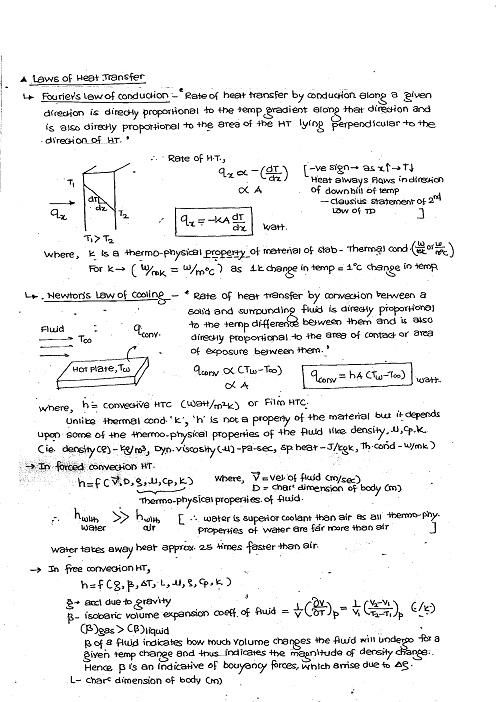 ▲ Laws of Heat Transfer
↳ Fourier's law of conduction - "Rate of heat transfer by conduction along a given
direction is directly proportional to the temp gradient along that direction and
is also directly proportional to the area of the HT lying perpendicular to the
direction of HT."
∴ Rate of H.T.,
qx ∝ -(dT/dx)
∝ A
[-ve sign → as x↑→T↓
Heat always flows in direction
of downhill of temp
- Clausius statement of 2nd
law of TD ]
T1
dT/dx
qx
T2
T1 > T2
qx = -KA dT/dx watt.
where, k is a thermo-physical property of material of slab - Thermal cond (W/mk or W/m°c)
For k → (W/mk = W/m°c) as 1k change in temp = 1°c change in temp
↳ Newton's Law of cooling - "Rate of heat transfer by convection between a
solid and surrounding fluid is directly proportional
to the temp difference between them and is also
directly proportional to the area of contact or area
of exposure between them."
Fluid
T∞
qconv.
Hot Plate, Tω
qconv ∝ (Tω-T∞)
∝ A
qconv = hA (Tω-T∞) watt.
where, h = convective HTC (watt/m²k) or Film HTC.
Unlike thermal cond. 'k', 'h' is not a property of the material but it depends
upon some of the thermo-physical properties of the fluid like density, μ, Cp, k.
(ie. density (ρ) - kg/m³, Dyn. viscosity (μ) - pa-sec, sp. heat - J/kgk, Th. cond - w/mk)
→ In forced convection HT.
h = f(V̄, D, ρ, μ, Cp, k) where, V̄ = vel of fluid (m/sec)
D = charc dimension of body (m)
Thermo-physical properties of fluid.
∴ hwith water >> hwith air [∴ water is superior coolant than air as all thermo-phy.
properties of water are far more than air ]
water takes away heat approx. 25 times faster than air.
→ In free convection HT,
h = f(g, β, ΔT, L, μ, ρ, Cp, k)
g → accl due to gravity
β - isobaric volume expansion coeff. of fluid = 1/V (∂V/∂T)p = 1/V1 (V2-V1/T2-T1)p (/k)
(β)gas > (β)liquid
β of a fluid indicates how much volume changes the fluid will undergo for a
given temp change and thus indicates the magnitude of density change.
Hence β is an indicative of bouyancy forces, which arise due to Δρ.
L - charc dimension of body (m)